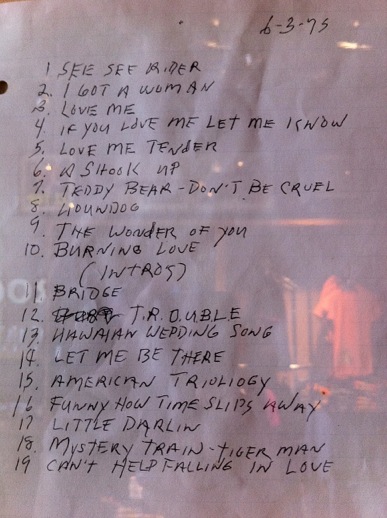 6-3-75
1 SEE SEE RIDER
2. I GOT A WOMAN
3. LOVE ME
4. IF YOU LOVE ME LET ME KNOW
5. LOVE ME TENDER
6. A SHOOK UP
7. TEDDY BEAR - DON'T BE CRUEL
8. HOUNDOG
9. THE WONDER OF YOU
10. BURNING LOVE
(INTROS)
11. BRIDGE
12. T.R.O.UBLE
13. HAWAIAN WEDDING SONG
14. LET ME BE THERE
15. AMERICAN TRIOLIOGY
16 FUNNY HOW TIME SLIPS AWAY
17 LITTLE DARLIN
18. MYSTERY TRAIN - TIGER MAN
19 CAN'T HELP FALLING IN LOVE